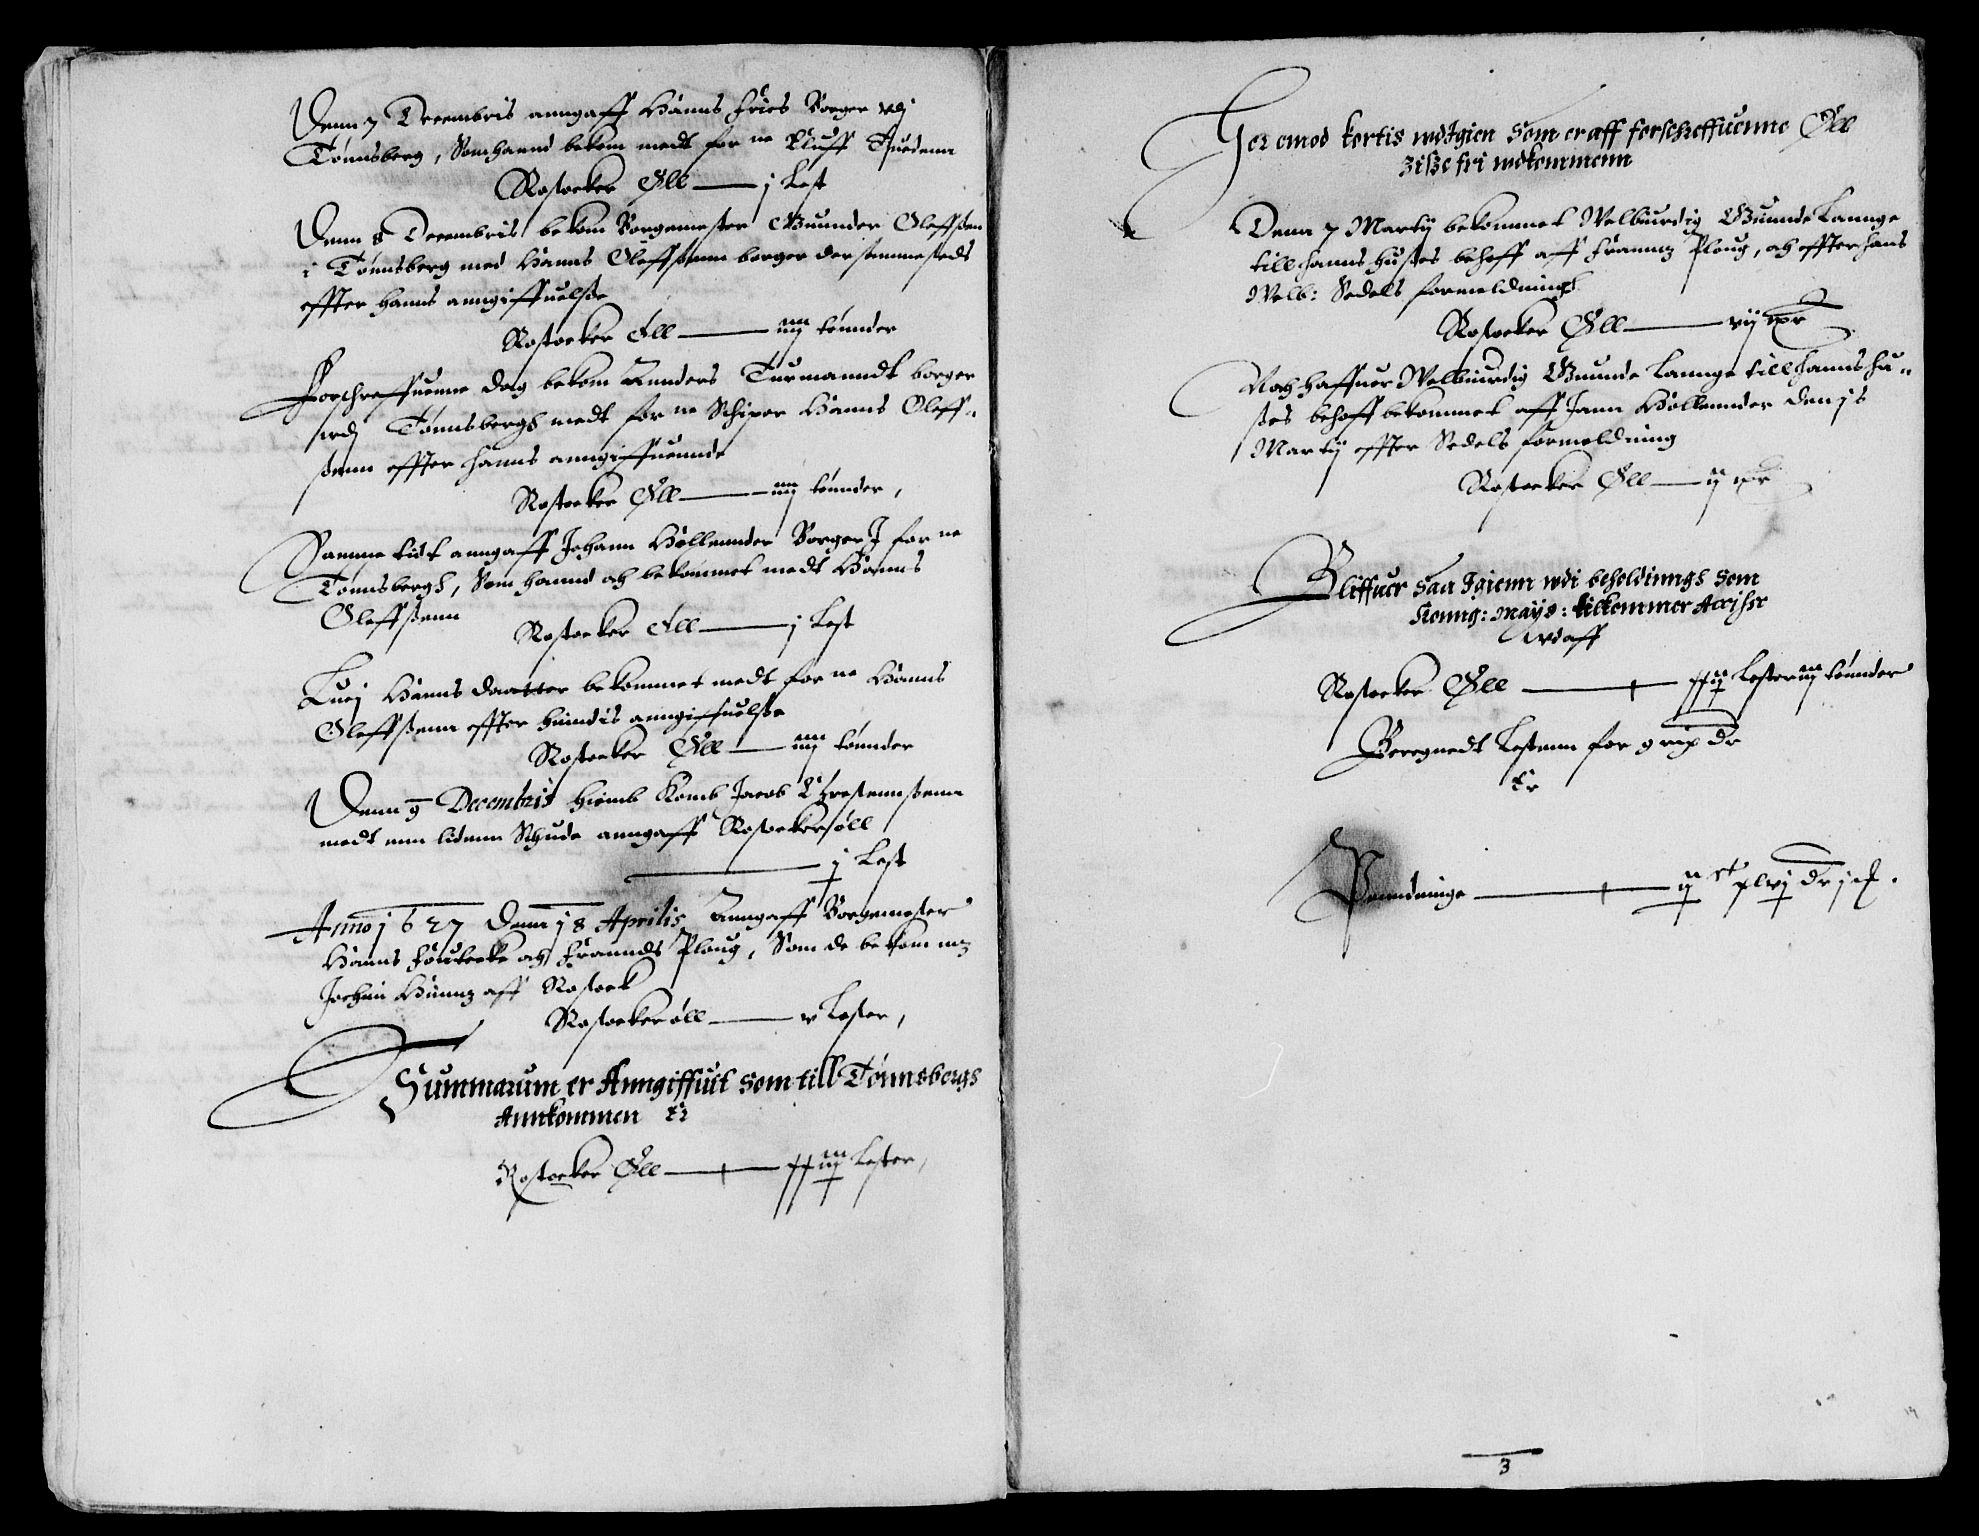 Denn 7 Decembris anngaff Hanns Fries Borger vdj
Tønnsberg, Som hannd bekom medt for ne Pluff Tuedenn
Rostocker Øll — j Lest
Denn 8 Decembris bekom Borgemester Gunnder Oleffßen
i Tønnsberg med Hanns Oleffßenn borger der sammesteds
effter hanns anngiffuelße
Rostocker Øll — iiij tønnder
Forschreffuenne dag bekom Annders Turmanndt borger
vdj Tønnsbergh medt for ne Schiper Hanns Oleff-
ßenn effter hanns anngiffuennde
Rostocker Øll — iiij tønnder,
Samme tidt anngaff Johann Hollennder Borger J for ne
Tønnsbergh, Som hannd och bekommet medt Hanns
Oleffßenn
Rostocker Øll — j Lest
Lucj Hanns daatter bekommet medt for ne Hanns
Oleffßenn effter hindis anngiffuelße
Rostocker Øll — iiij tønnder
Denn 9 Decembris hiemb Komb Jacob Chrestennßenn
medt enn lidenn Schude anngaff Rostockerøll
— j Lest
Anno 1627 Denn 18 Aprilis Anngaff Borgemester
Hanns och Franndz Ploug, Som de bekom mz
Jochim aff Rostock
Rostockerøll — v Lester,
Summarum er Anngiffuit som till Tønnsbergs
Annkommen Er
Rostocker Øll — xxiiij Lester,
Her emod kortis wdJgien som er aff forschreffuenne Øll
ziße fri wdkommenn
Denn 7 Martij bekommet Welbiurdig Gunnde Lannge
till hanns hußes behoff aff Frannz Ploug, och effter hans
Welb: Sedels formeldningh
Rostocker Øll — vij tdr
Noch haffuer Welbiurdig Gunnde Lannge till hanns hu-
ßes behoff bekommet aff Jann Hollennder den 18
Martij effter Sedels formeldning
Rostocker Øll — ij tdr
Bliffuer saa Jgienn wdi beholdinngh som
Konng: Mayß: tilkommer Accißer
wdaff
Rostocker Øll — xxiij Lester iij tønnder
Beregnedt Lestenn for dr
Er
Penndninge — ij ct xlvj dr j
3